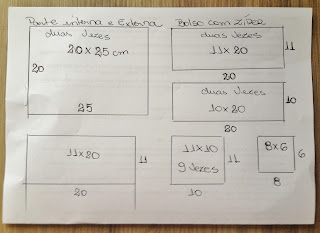 Parte interna e Externa
duas vezes
20 x 25 cm
20
25
Bolso com ZÍPER
duas vezes
11 x 20
11
20
duas vezes
10 x 20
10
20
11 x 20
11
20
11 x 10
9 vezes
11
10
8 x 6
6
8